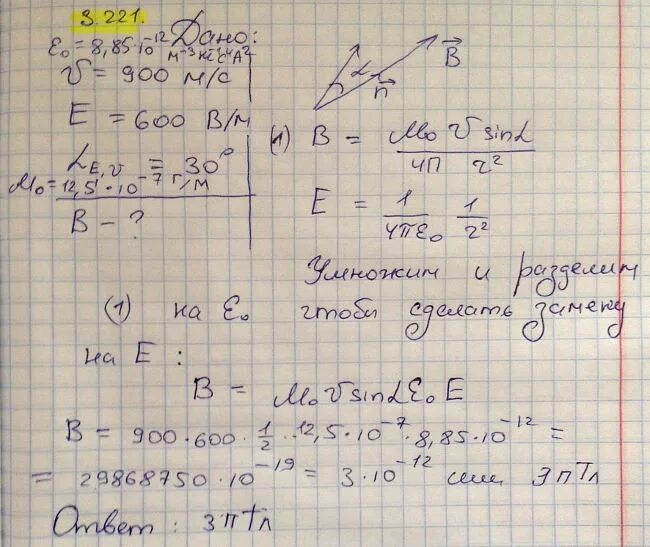 3.221.
Дано:
ε₀ = 8,85·10⁻¹²
м⁻³кг⁻¹с⁴А²
v = 900 м/с
E = 600 В/м
∠E,v = 30°
μ₀ = 12,5·10⁻⁷ г/м
B – ?
α
n
B
(1) B = μ₀/4π v sinα/r²
E = 1/4πε₀ 1/r²
Умножим и разделим
(1) на ε₀ чтоби сделать замену
на E :
B = μ₀ v sinα ε₀ E
B = 900·600·1/2·12,5·10⁻⁷·8,85·10⁻¹² =
= 29868750·10⁻¹⁹ = 3·10⁻¹² или 3пТл
Ответ : 3пТл